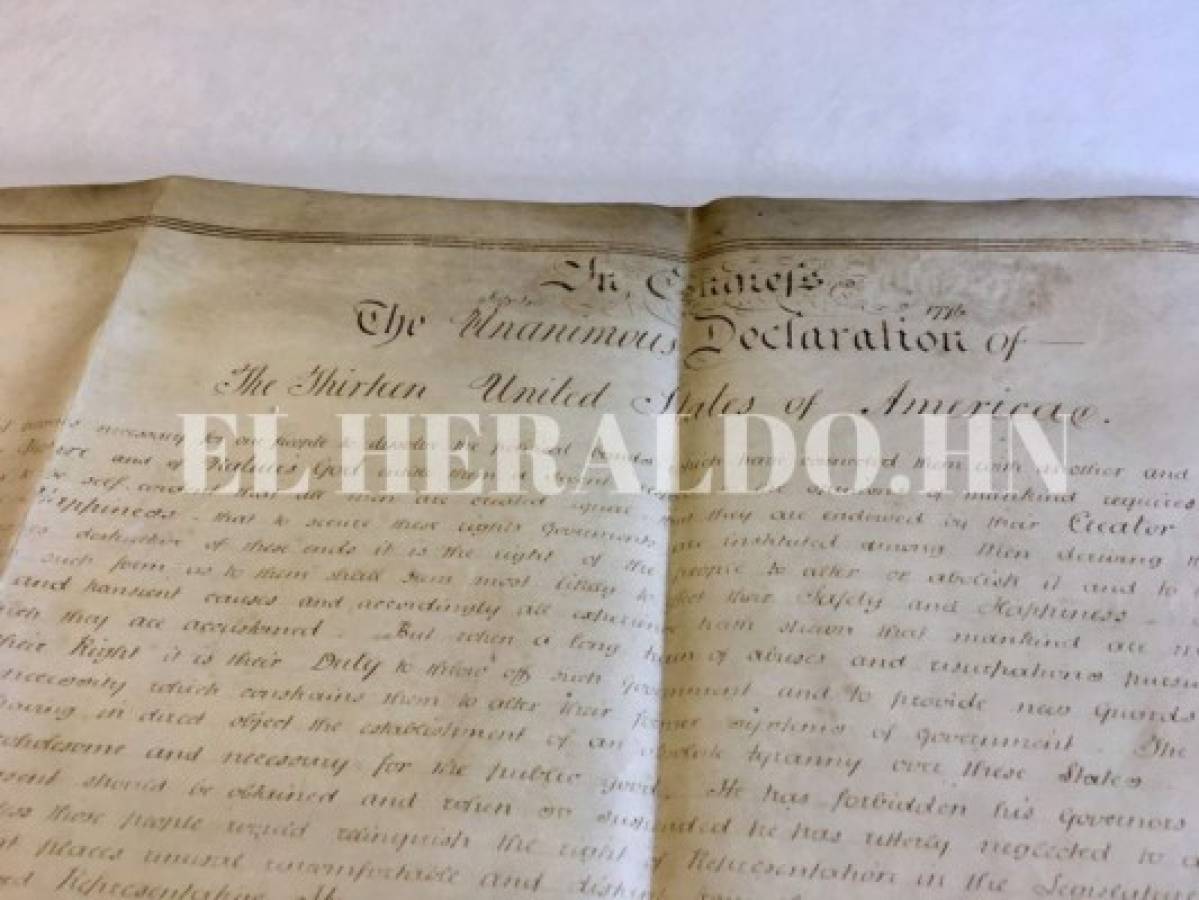 In Congress
1776
The Unanimous Declaration of
The Thirteen United States of America.
EL HERALDO.HN
necessary for one people to dissolve the political bands which have connected them with another and
and of Nature's God entitle them a decent of mankind requires
self-evident that all men are created equal that they are endowed by their Creator
Happiness - that to secure these rights Governments are instituted among Men deriving
destructive of these ends it is the right of the people to alter or abolish it and to
such form as to them shall seem most likely to effect their Safety and Happiness -
and transient causes and accordingly all experience hath shewn that mankind are
they are accustomed - But when a long train of abuses and usurpations
their Right it is their Duty to throw off such Government and to provide new Guards
necessity which constrains them to alter their former Systems of Government - The
having in direct object the establishment of an absolute tyranny over these States
wholesome and necessary for the public good. He has forbidden his Governors
should be obtained and when so suspended he has utterly neglected to
those people would relinquish the right of Representation in the Legislature
places unusual uncomfortable and distant
Representative